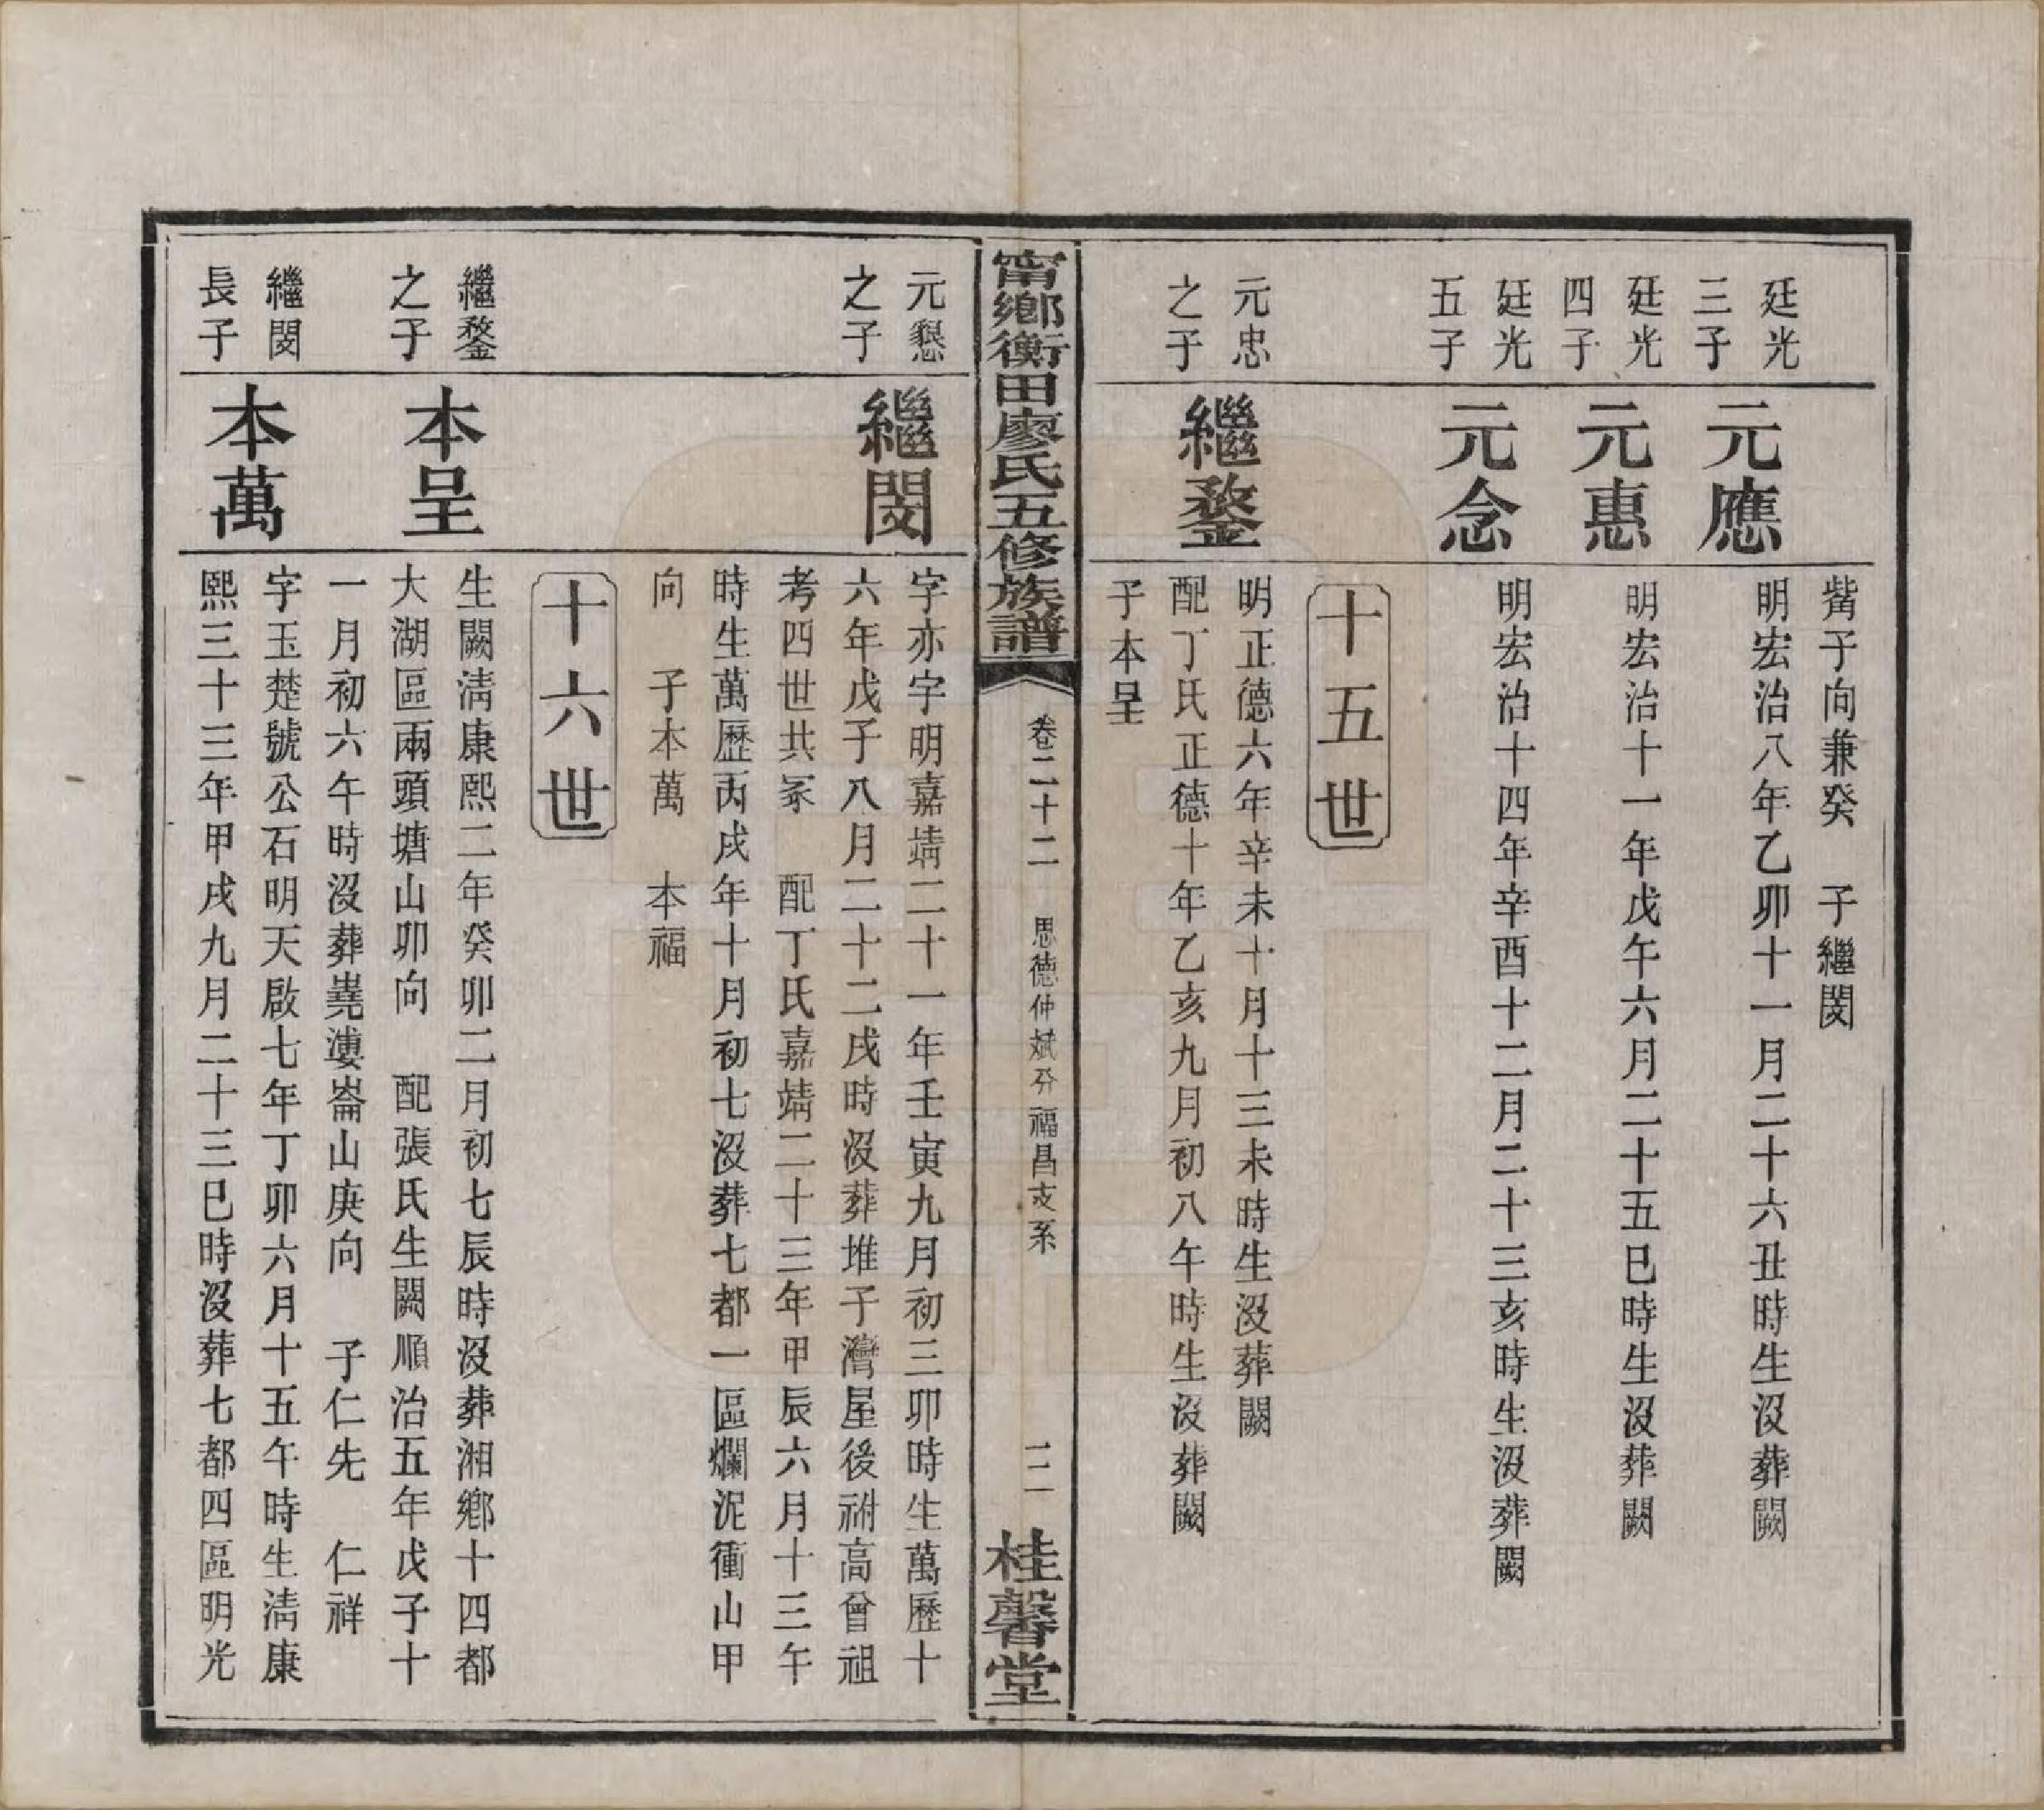 觜子向兼癸　子繼閔
廷光
三子
元應
明宏治八年乙卯十一月二十六丑時生沒葬闕
廷光
四子
元惠
明宏治十一年戊午六月二十五巳時生沒葬闕
廷光
五子
元念
明宏治十四年辛酉十二月二十三亥時生沒葬闕
十五世
元忠
之子
繼鍪
明正德六年辛未十月十三未時生沒葬闕
配丁氏正德十年乙亥九月初八午時生沒葬闕
子本呈
甯鄉衡田廖氏五修族譜
卷二十二
思德仲斌分福昌支系
二
桂馨堂
元懇
之子
繼閔
字亦字明嘉靖二十一年壬寅九月初三卯時生萬歷十
六年戊子八月二十二戌時沒葬堆子灣屋後祔高曾祖
考四世共冢　配丁氏嘉靖二十三年甲辰六月十三午
時生萬歷丙戌年十月初七沒葬七都一區爛泥衝山甲
向　子本萬　本福
十六世
繼鍪
之子
本呈
生闕清康熙二年癸卯二月初七辰時沒葬湘鄉十四都
大湖區兩頭塘山卯向　配張氏生闕順治五年戊子十
一月初六午時沒葬嶤漊崙山庚向　子仁先　仁祥
繼閔
長子
本萬
字玉楚號公石明天啟七年丁卯六月十五午時生清康
熙三十三年甲戌九月二十三巳時沒葬七都四區明光